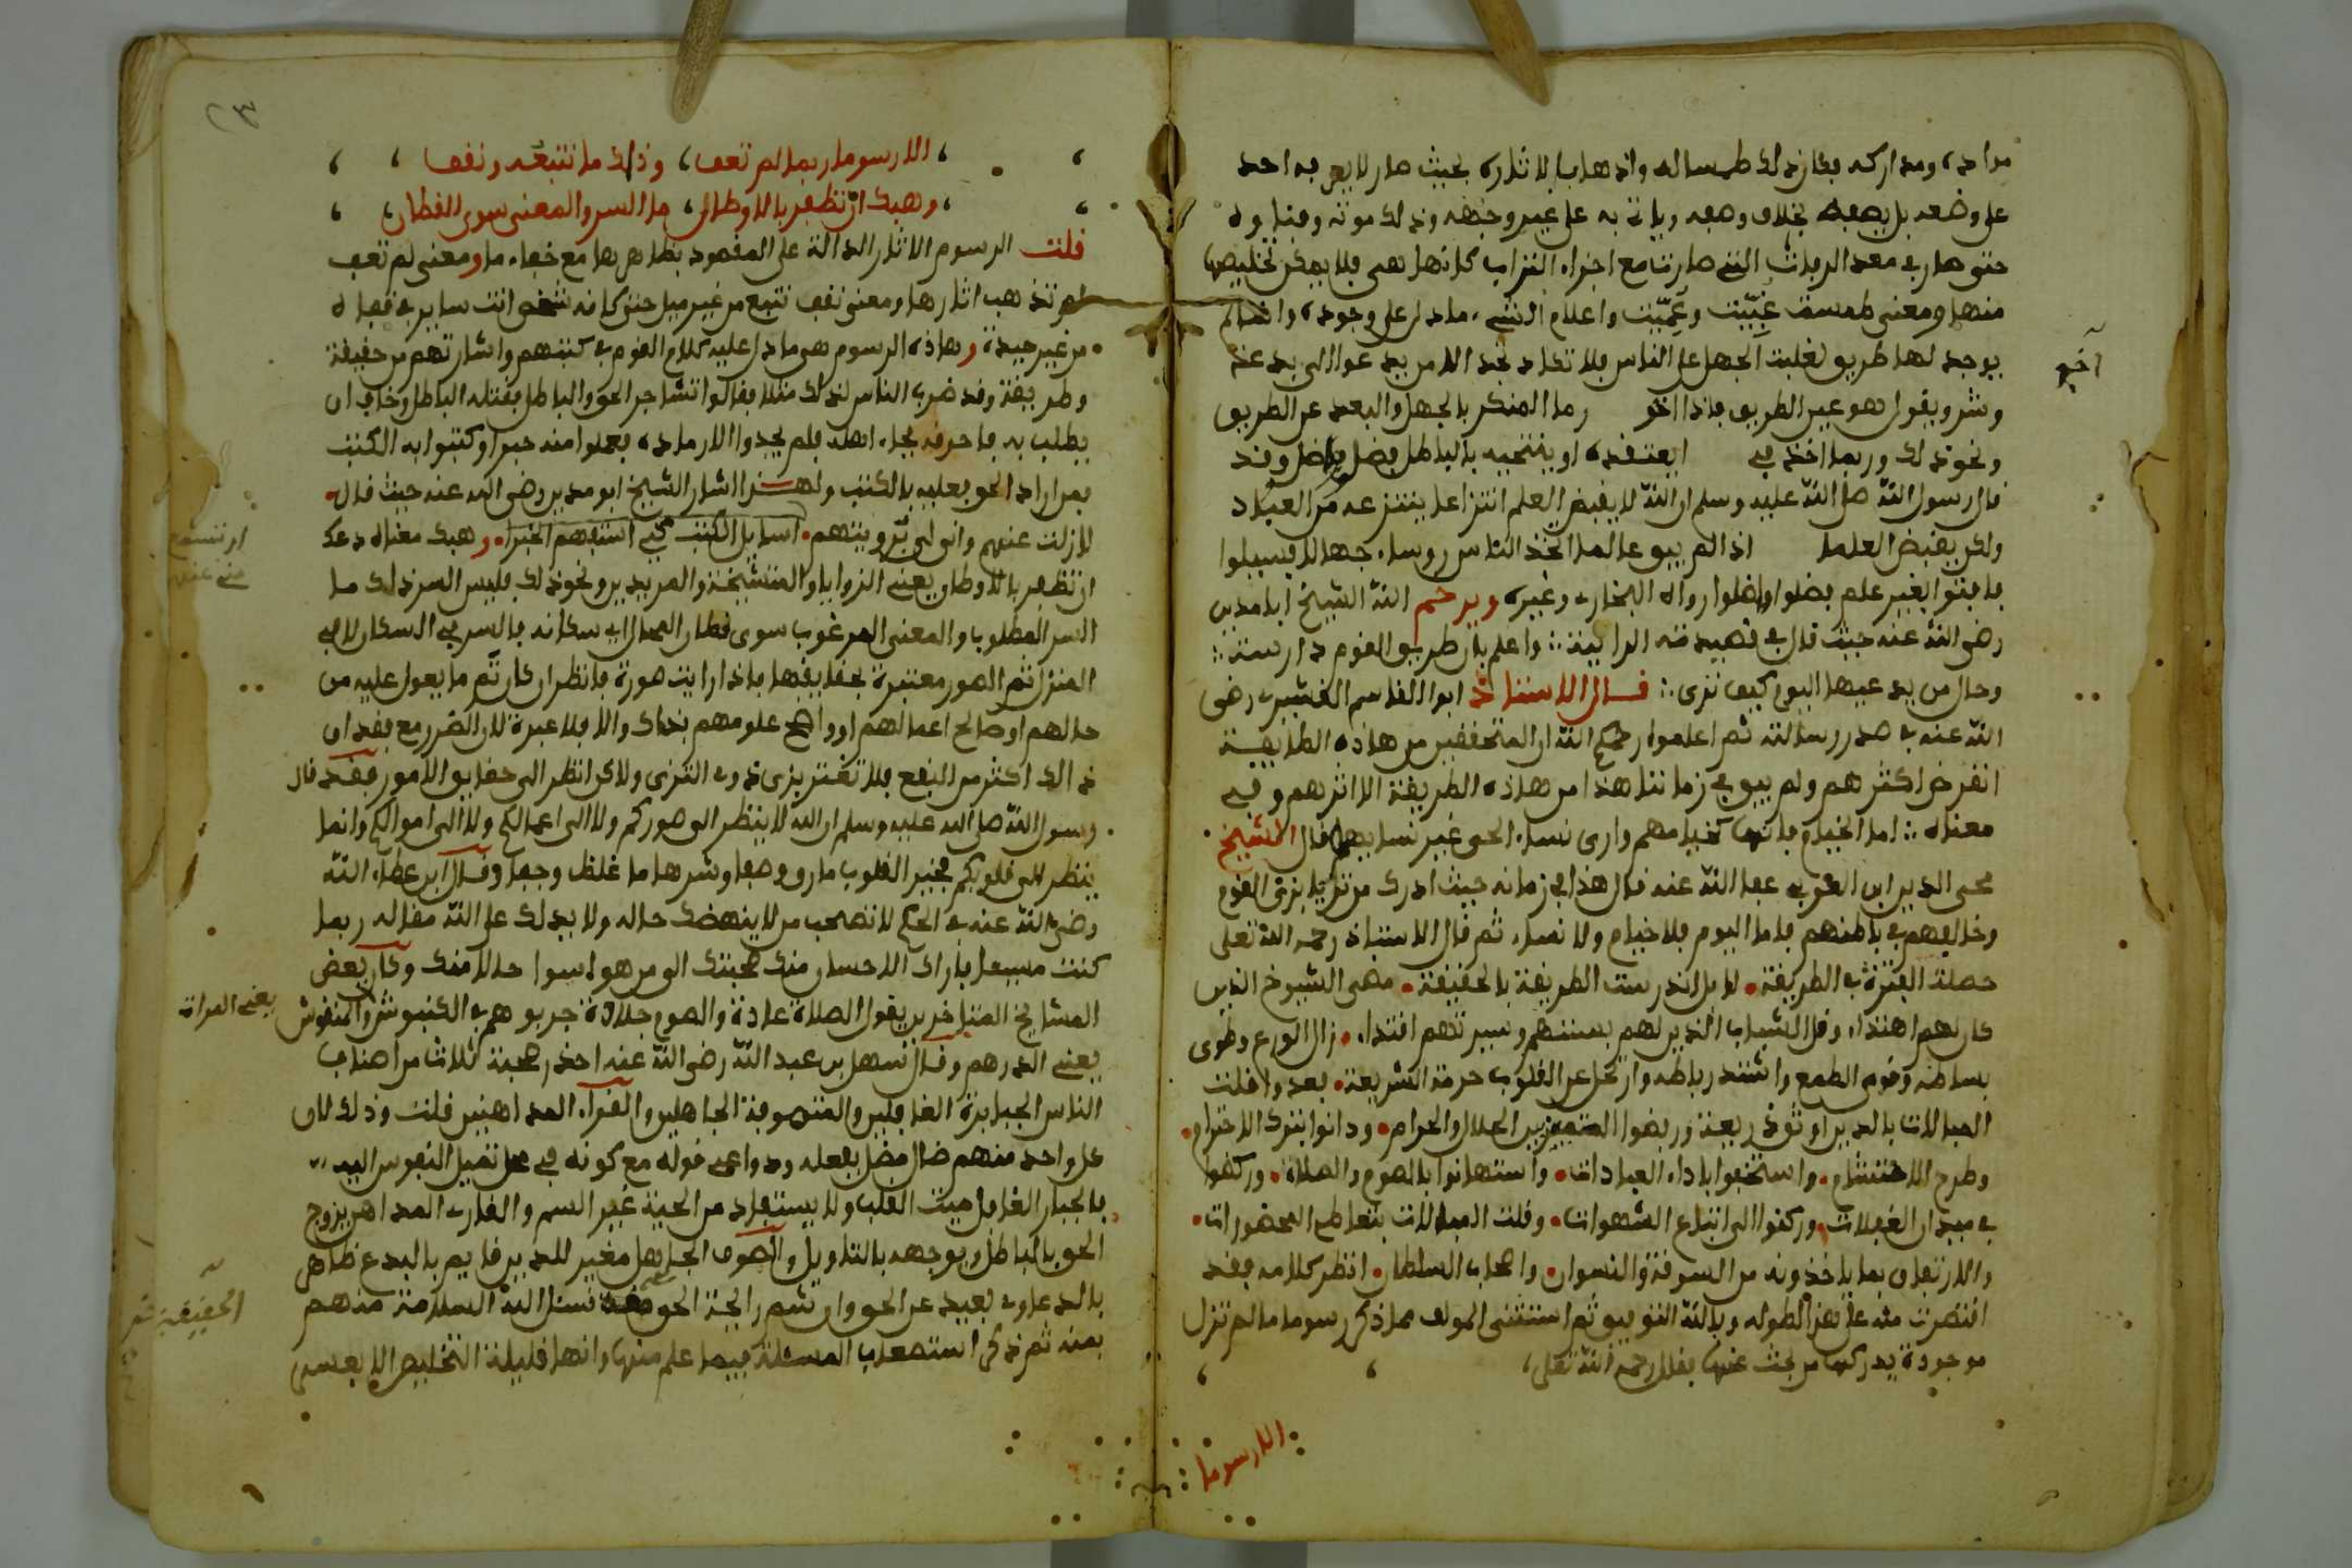 مراده ومداركه فكان ذلك طمسا له واذهابا لاثاره بحيث صار لا يعرفه احد
على وضعه بل بخلاف وصفه وياتي به على غير وجهه وذلك موته
حتى صار في معد الرفات التي صارت مع اجزاء التراب كانها هي فلا يمكن تخليصها
منها ومعنى طمست غيبت وعميت واعلام الشيء ما دل على وجوده
يوجد لها طريق لغلبت الجهل على الناس فلا تكاد تجد الا من يدعوا الى بدعة
وشر ويقول هو عين الطريق فاذا رما المنكر بالجهل والبعد عن الطريق
ونحو ذلك وربما اخذ في او ينتحيه بالباطل فضل واضل وقد
قال رسول الله صلى الله عليه وسلم ان الله لا يقبض العلم انتزاعا ينتزعه من العباد
ولكن يقبض العلما اذا لم يبق عالما اتخذ الناس روساء جهالا فسيلوا
فافتوا بغير علم فضلوا واضلوا رواه البخاري وغيره ويرحم الله الشيخ ابا مدين
رضى الله عنه حيث قال في قصيدته الرايية واعلم بان طريق القوم دارسة
وحال من يدعيها اليوم كيف ترى قال الاستاذ ابوا القاسم القشيري رضى
الله عنه في صدر رسالته ثم اعلموا رحمكم الله ان المتحققين من هاذه الطايفة
انقرض اكثرهم ولم يبق في زماننا هذا من هاذه الطريقة الا اثرهم وفي
معناه اما الخيام فانها كخيامهم وارى نساء الحي غير نسايها قال الشيخ
محى الدين ابن العربي عفا الله عنه قال هذا في زمانه حيث ادرك من تزيا بزي القوم
وخالفهم في باطنهم فاما اليوم فلا خيام ولا نساء ثم قال الاستاذ رحمه الله تعلى
حصلت الفترة في الطريقة لا بل اندرست الطريقة بالحقيقة مضى الشيوخ الذين
كان لهم اهتداء وقل الشباب الذين لهم بسننهم وسيرتهم اقتداء زال الورع وطوى
بساطه وقوى الطمع واشتد رباطه وارتحل عن القلوب حرمة الشريعة فعدوا قلت
المبالات بالدين اوثق ذريعة ورفضوا التمييز بين الحلال والحرام ودانوا بترك الاحترام
وطرح الاحتشام واستخفوا باداء العبادات واستهانوا بالصوم والصلاة وركضوا
في ميدان الغفلات وركنوا الى اتباع الشهوات وقلت المبالات بتعاطي المحضورات
والارتفاق بما ياخذونه من السوقة والنسوان واصحاب السلطان انظر كلامه فقد
اقتصرت منه على هذا لطوله وبالله التوفيق ثم استثنى المولف مما ذكر رسوما ما لم تزل
موجودة يدركها من بحث عنها فقال رحمه الله تعلى
الا رسوما
الا رسوما ربما لم تعف وذاك ما نتبعه ونقف
وهبك ان تظفر بالاوطان ما السر والمعنى سوى القطان
قلت الرسوم الاثار الدالة على المقصود بظاهرها مع خفاء ما ومعنى لم تعف
لم تذهب اثارها ومعنى نقف نتبع من غير ميل حتى كانه شخص انت ساير في قفاه
من غير حيدة وهاذه الرسوم هي ما دل عليه كلام القوم في كتبهم واشارتهم من حقيقة
وطريقة وقد ضرب الناس لذلك مثلا فقالوا تشاجر الحق والباطل فقتله الباطل وخاف ان
يطلب به فاحرقه فجاء اهله فلم يجدوا الا رماده فعملوا منه حبرا وكتبوا به الكتب
فمن اراد الحق فعليه بالكتب ولهذا اشار الشيخ ابو مدين رضى الله عنه حيث قال
لازلت عنهم وهبك معناه دعك
ان تظفر بالاوطان يعني الزوايا والمتشيخة والمريدين ونحو ذلك فليس السر ذلك ما
السر المطلوب والمعنى المرغوب سوى قطان المحال اي سكانه فالسر في السكان لا في
المنزل ثم الصور معتبرة بحقايقها فاذا رايت صورة فانظر ان كان ثم ما يعول عليه من
حالهم او صالح اعمالهم او واضح علومهم فذاك والا فلا عبرة لان الضرر مع فقدان
ذالك اكثر من النفع فلا تغتر بزى ذوى التزى ولاكن انظر الى حقايق الامور فقد قال
رسول الله صلى الله عليه وسلم ان الله لا ينظر الى صوركم ولا الى اعمالكم ولا الى اموالكم وانما
ينظر الى قلوبكم فخير القلوب ما رق وصفا وشرها ما غلظ وجفا وقال ابن عطاء الله
رضى الله عنه في الحكم لا تصحب من لا ينهضك حاله ولا يدلك على الله مقاله ربما
كنت مسيعا فاراك الاحسان منك صحبتك الى من هو اسوا حالا منك وكان بعض
المشايخ المتاخرين يقول الصلاة عادة والصوم جلادة جربوهم في الكنبوش والمنقوش
يعنى الدرهم وقال سهل بن عبد الله رضى الله عنه احذر صحبة ثلاث من اصناف
الناس الجبابرة الغافلين والمتصوفة الجاهلين والقراء المداهنين قلت وذلك لان
كل واحد منهم ضال مضل بفعله ودواعى قوله مع كونه في محل تميل النفوس اليه
فالجبار الغافل ميت القلب ولا يستفاد من الحية غير السم والقارى المداهن يزوج
الحق بالباطل ويوجهه بالتاويل والصوفي الجاهل مغير للدين قايم بالبدع ظاهر
بالدعاوى بعيد عن الحق وان شم رايحة الحق نسئل الله السلامة منهم
بمنه ثم ذكر استصعاب المسئلة فيما علم منها وانها قليلة التخليص الا بعسى
يعنى المرات
الحقيقة